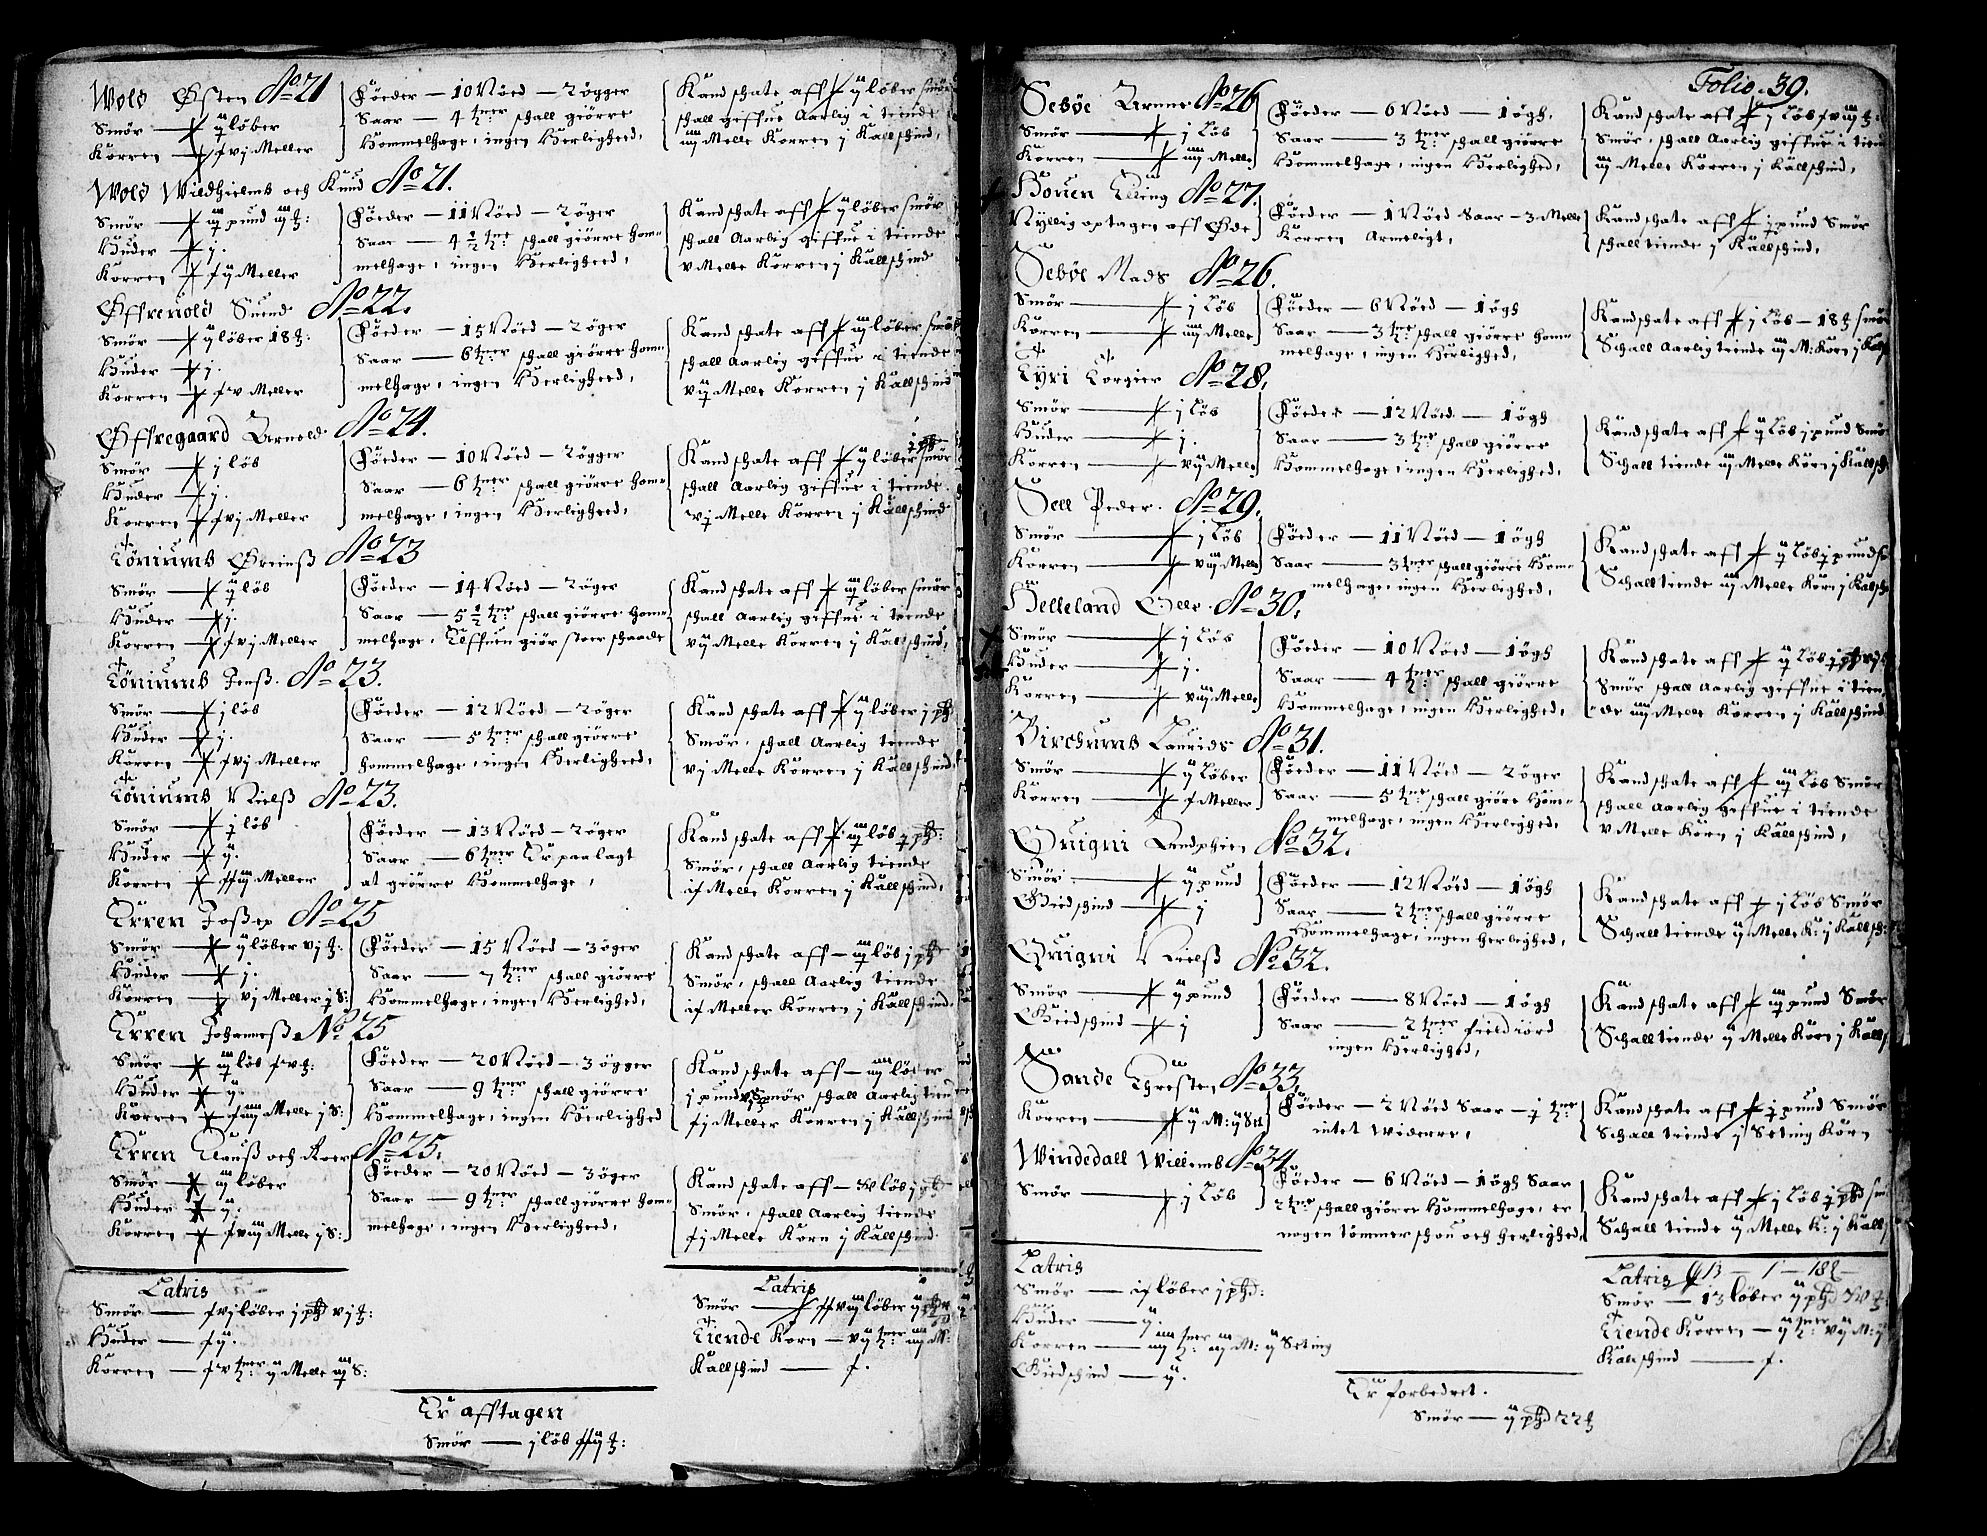 Wold Østen No 21
Smör — ij löber
Korren — xvj Meller
Föeder — 10 Nöed — 2 ögger
Saar — 4 tner schall giörre
Hommelhage, ingen Herlighed,
Kand schate aff ij löber smör
schall giffue Aarlig i tiende
iiij Melle Korren j Kallschind,
Wold Wildhielmb och Knud No 21.
Smör — iij pund iij ℔:
Huder — j.
Korren — xij Meller
Föeder — 11 Nöed — 2 öger
Saar — 4½ tne schall giörre hom-
melhage, ingen Herligheed,
Kand schate aff ij löber smör
schall Aarlig giffue i tiende
v Melle Korren j Kallschind
Øffreuold Suend No 22.
Smör — ij löber 18 ℔:
Huder — j.
Korren — xv Meller
Föeder — 15 Nöed — 2 öger
Saar — 6 tner schall giörre hom-
melhage, ingen Herligheed,
Kand schate aff iij löber smör
schall Aarlig giffue i tiende
vij Melle Korren j Kallschind
Øffregaard Arnold No 24.
Smör — j löb
Huder — j.
Korren — xvj Meller
Föeder — 10 Nöed — 2 ögger
Saar — 6 tner schall giörre hom-
melhage, ingen Herligheed,
Kand schate aff ij löber smör
schall Aarlig giffue i tiende
vj Melle Korren j Kallschind
Töniumb No 23
Smör — ij löb
Huder — j.
Korren — xvj Meller
Föeder — 14 Nöed — 2 öger
Saar — 5½ tne schall giörre hom-
melhage, Elffuen giör stoer schaade
Kand schate aff iij löber smör
schall Aarlig giffue i tiende
vij Melle Korren j Kallschind,
Töniumb Jenß No 23.
Smör — j löb
Huder — j.
Korren — xvj Meller
Föeder — 12 Nöed — 2 öger
Saar — 5 tner schall giörre
hommelhage, ingen Herligheed,
Kand schate aff ij löber j pd
Smör, schall Aarlig tiende
vj Melle Korren j Kallschind,
Töniumb Nielß No 23.
Smör — j löb
Huder — ij.
Korren — Meller
Föeder — 13 Nöed — 2 öger
Saar — 6 tner Er paalagt
at giörre Hommelhage,
Kand schate aff iij löb j pd:
Smör, schall Aarlig tiende
ix Melle Korren j Kallschind,
Erren Joßep No 25
Smör — ij löber vj ℔:
Huder — j.
Korren — vj Meller j S:
Föeder — 15 Nöed — 3 öger
Saar — 7 tner schall giörre
Hommelhage, ingen Herlighed,
Kand schate aff — iij löb j pd
Smör, schall Aarlig tiende
ix Meller Korren j Kallschind,
Erren Johanneß No 25
Smör — iij löb xv ℔:
Huder — ij.
Korren — Melle j S:
Föeder — 20 Nöed — 3 ögger
Saar — 9 tner schall giörre
Hommelhage, ingen Herlighed
Kand schate aff — iiij löber
j pund Smör schall Aarlig tiend
xj Meller Korren j Kallschind
Erren Clauß och No 25.
Smör — iij löber
Huder — ij.
Korren — Melle j S:
Föeder — 20 Nöed — 3 öger
Saar — 9 tner schall giörre hom-
melhage, ingen Herligheed,
Kand schate aff — löb j pd
Smör, schall Aarlig tiende
xj Melle Korn j Kallschind
Latris
Smör — xvj löber j pd vj ℔:
Huder — xij.
Korren — xv tner ij Melle iij S:
Latris
Smör — löber ij pd
Tiende Korn — vij tner iiij M:
Kallschind — x.
Er afftagen
Smör — j löb xxij ℔:
Folio. 39.
Seböe Arnne No 26
Smör — j Löb
Korren — iiij Melle
Föeder — 6 Nöed — 1 ögh,
Saar — 3 tner schall giörre
Hommelhage, ingen Herlighed,
Kand schate aff j Löb
Smör, schall Aarlig giffue i tien
iij Melle Korren j Kallschind,
Houen Elling No 27.
Nyllig optagen aff Øde
Föeder — 1 Nöed Saar — 3 Melle
Korren Armeligt,
Kand schate aff j pund Smör
schall tiende j Kallschind,
Seböe Mads No 26.
Smör — j Löb
Korren — iiij Melle
Föeder — 6 Nöed — 1 ögh
Saar — 3 tne schall giörre hom-
melhage, ingen Herlighed,
Kand schate aff j Löb — 18 ℔ smör
Schall Aarlig tiende iij M: Korn j Kalsch
Tyri Torgier No 28.
Smör — j Löb
Huder — j.
Korren — vij Melle
Föeder — 12 Nöed — 1 ögh
Saar — 3 tner schall giörre
Hommelhage, ingen Herlighed,
Kand schate aff ij Löb j pund Smör
Schall tiende iij Melle Korn j Kallsch
Sell Peder. No 29.
Smör — j Löb
Korren — viij Melle
Föeder — 11 Nöed — 1 ögh
Saar — 3 tner schall giörre hom-
melhage, ingen Herlighed,
Kand schate aff ij Löb j pund
Schall tiende iij Melle Korn j Kalsch
Helleland No 30.
Smör — j Löb
Huder — j.
Korren — viij Melle
Föeder — 10 Nöed — 1 ögh
Saar — 4 tner schall giörre
Hommelhage, ingen Herlighed,
Kand schate aff ij Löb
Smör schall Aarlig giffue i tien
de iiij Melle Korren j Kallschind
Birchumb Laurids No 31.
Smör — ij Löber
Korren — x Meller
Föeder — 11 Nöed — 2 öger
Saar — 5 tne schall giöre hom-
melhage, ingen Herlighed,
Kand schate aff iij Löb Smör
schall Aarlig giffue i tiende
v Melle Korn j Kallschind,
Quigni No 32.
Smör — ij pund
Giedschind — j
Föeder — 12 Nöed — 1 ögh
Saar — 2 tner schall giörre
Hommelhage, ingen herlighed,
Kand schate aff j Löb Smör
Schall tiende ij Melle K: j Kallsch:
Quigni Nielß No 32.
Smör — ij pund
Giedschind — j
Föeder — 8 Nöed — 1 ögh
Saar — 2 tner fieldiord
ingen Herlighed,
Kand schate aff iij pund Smör
Schall tiende ij Melle Korn j Kalls
Sande Chresten No 33.
Korren — ij M: ij
Föeder — 2 Nöed Saar — j tne
intet widerre,
Kand schate aff j pund Smör
Schall tiende j Seting Korn
Windedall Willemb No 34
Smör — j Löb
Föeder — 6 Nöed — 1 ögh Saar
2 tner schall giörre Hommelhage, er
nogen tömmer schou och herlighed,
Kand schate aff j Löb j pd
Schall tiende ij Melle K: j Kall
Latris
Smör — ix löber j pd:
Huder — ij.
Korren — iiij tner iij M: ij Seting
Giedschind — ij.
Latris
Smör — 13 löber ij pd
Tiende Korren — ij tner vij M:
Kallschind — x.
Er forbedret.
Smör — ij pd 22 ℔